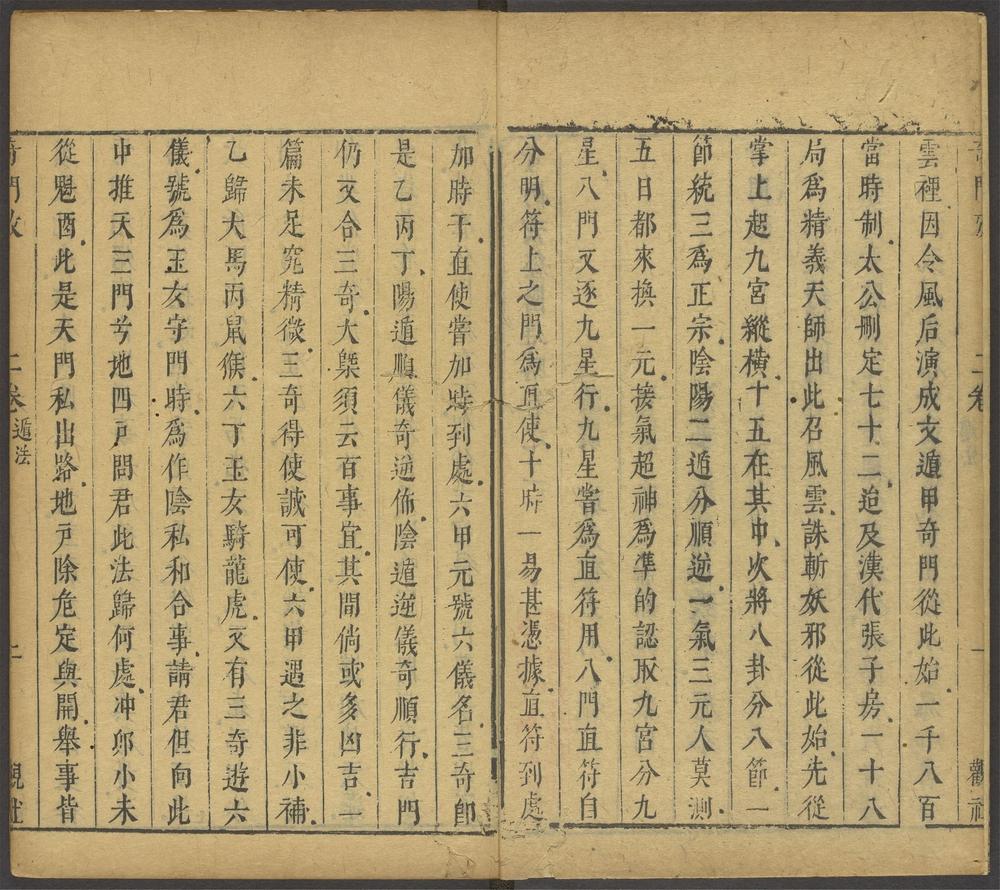 二卷 一
雲裡因令風后演成文遁甲奇門從此始一千八百
當時制太公刪定七十二迨及漢代張子房一十八
局爲精義天師出此召風雲誅斬妖邪從此始先從
掌上起九宮縱橫十五在其中次將八卦分八節一
節統三爲正宗陰陽二遁分順逆一氣三元人莫測
五日都來換一元接氣超神爲準的認取九宮分九
星八門又逐九星行九星嘗爲直符用八門直符自
分明符上之門爲直使十時一易甚憑據直符到處
加時干直使嘗加時到處六甲元號六儀名三奇卽
是乙丙丁陽遁順儀奇逆佈陰遁逆儀奇順行吉門
仍又合三奇大槩須云百事宜其間倘或多凶吉一
篇未足窕精微三奇得使誠可使六甲遇之非小補
乙歸犬馬丙鼠猴六丁玉女騎龍虎又有三奇遊六
儀號爲玉女守門時爲作陰私和合事請君但向此
中推天三門兮地四戶問君此法歸何處冲郎小未
從魁酉此是天門私出路地戶除危定與開舉事皆
二卷 遁法